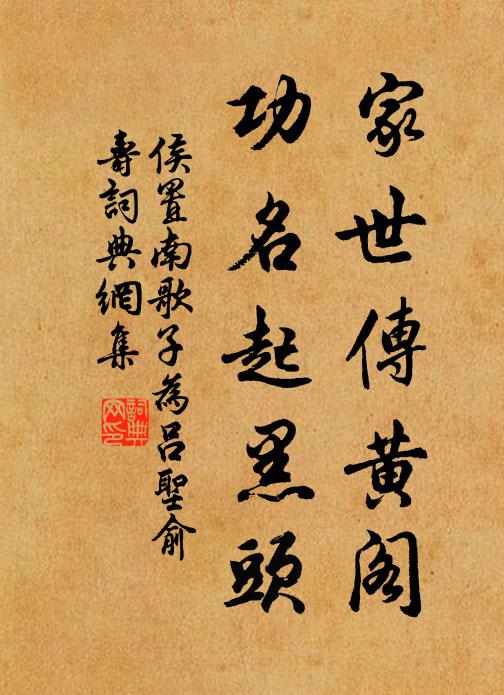 家世傳黃阁
功名起黑頭
侯置南歌子為呂聖俞
壽詞典網集
詞典
网印